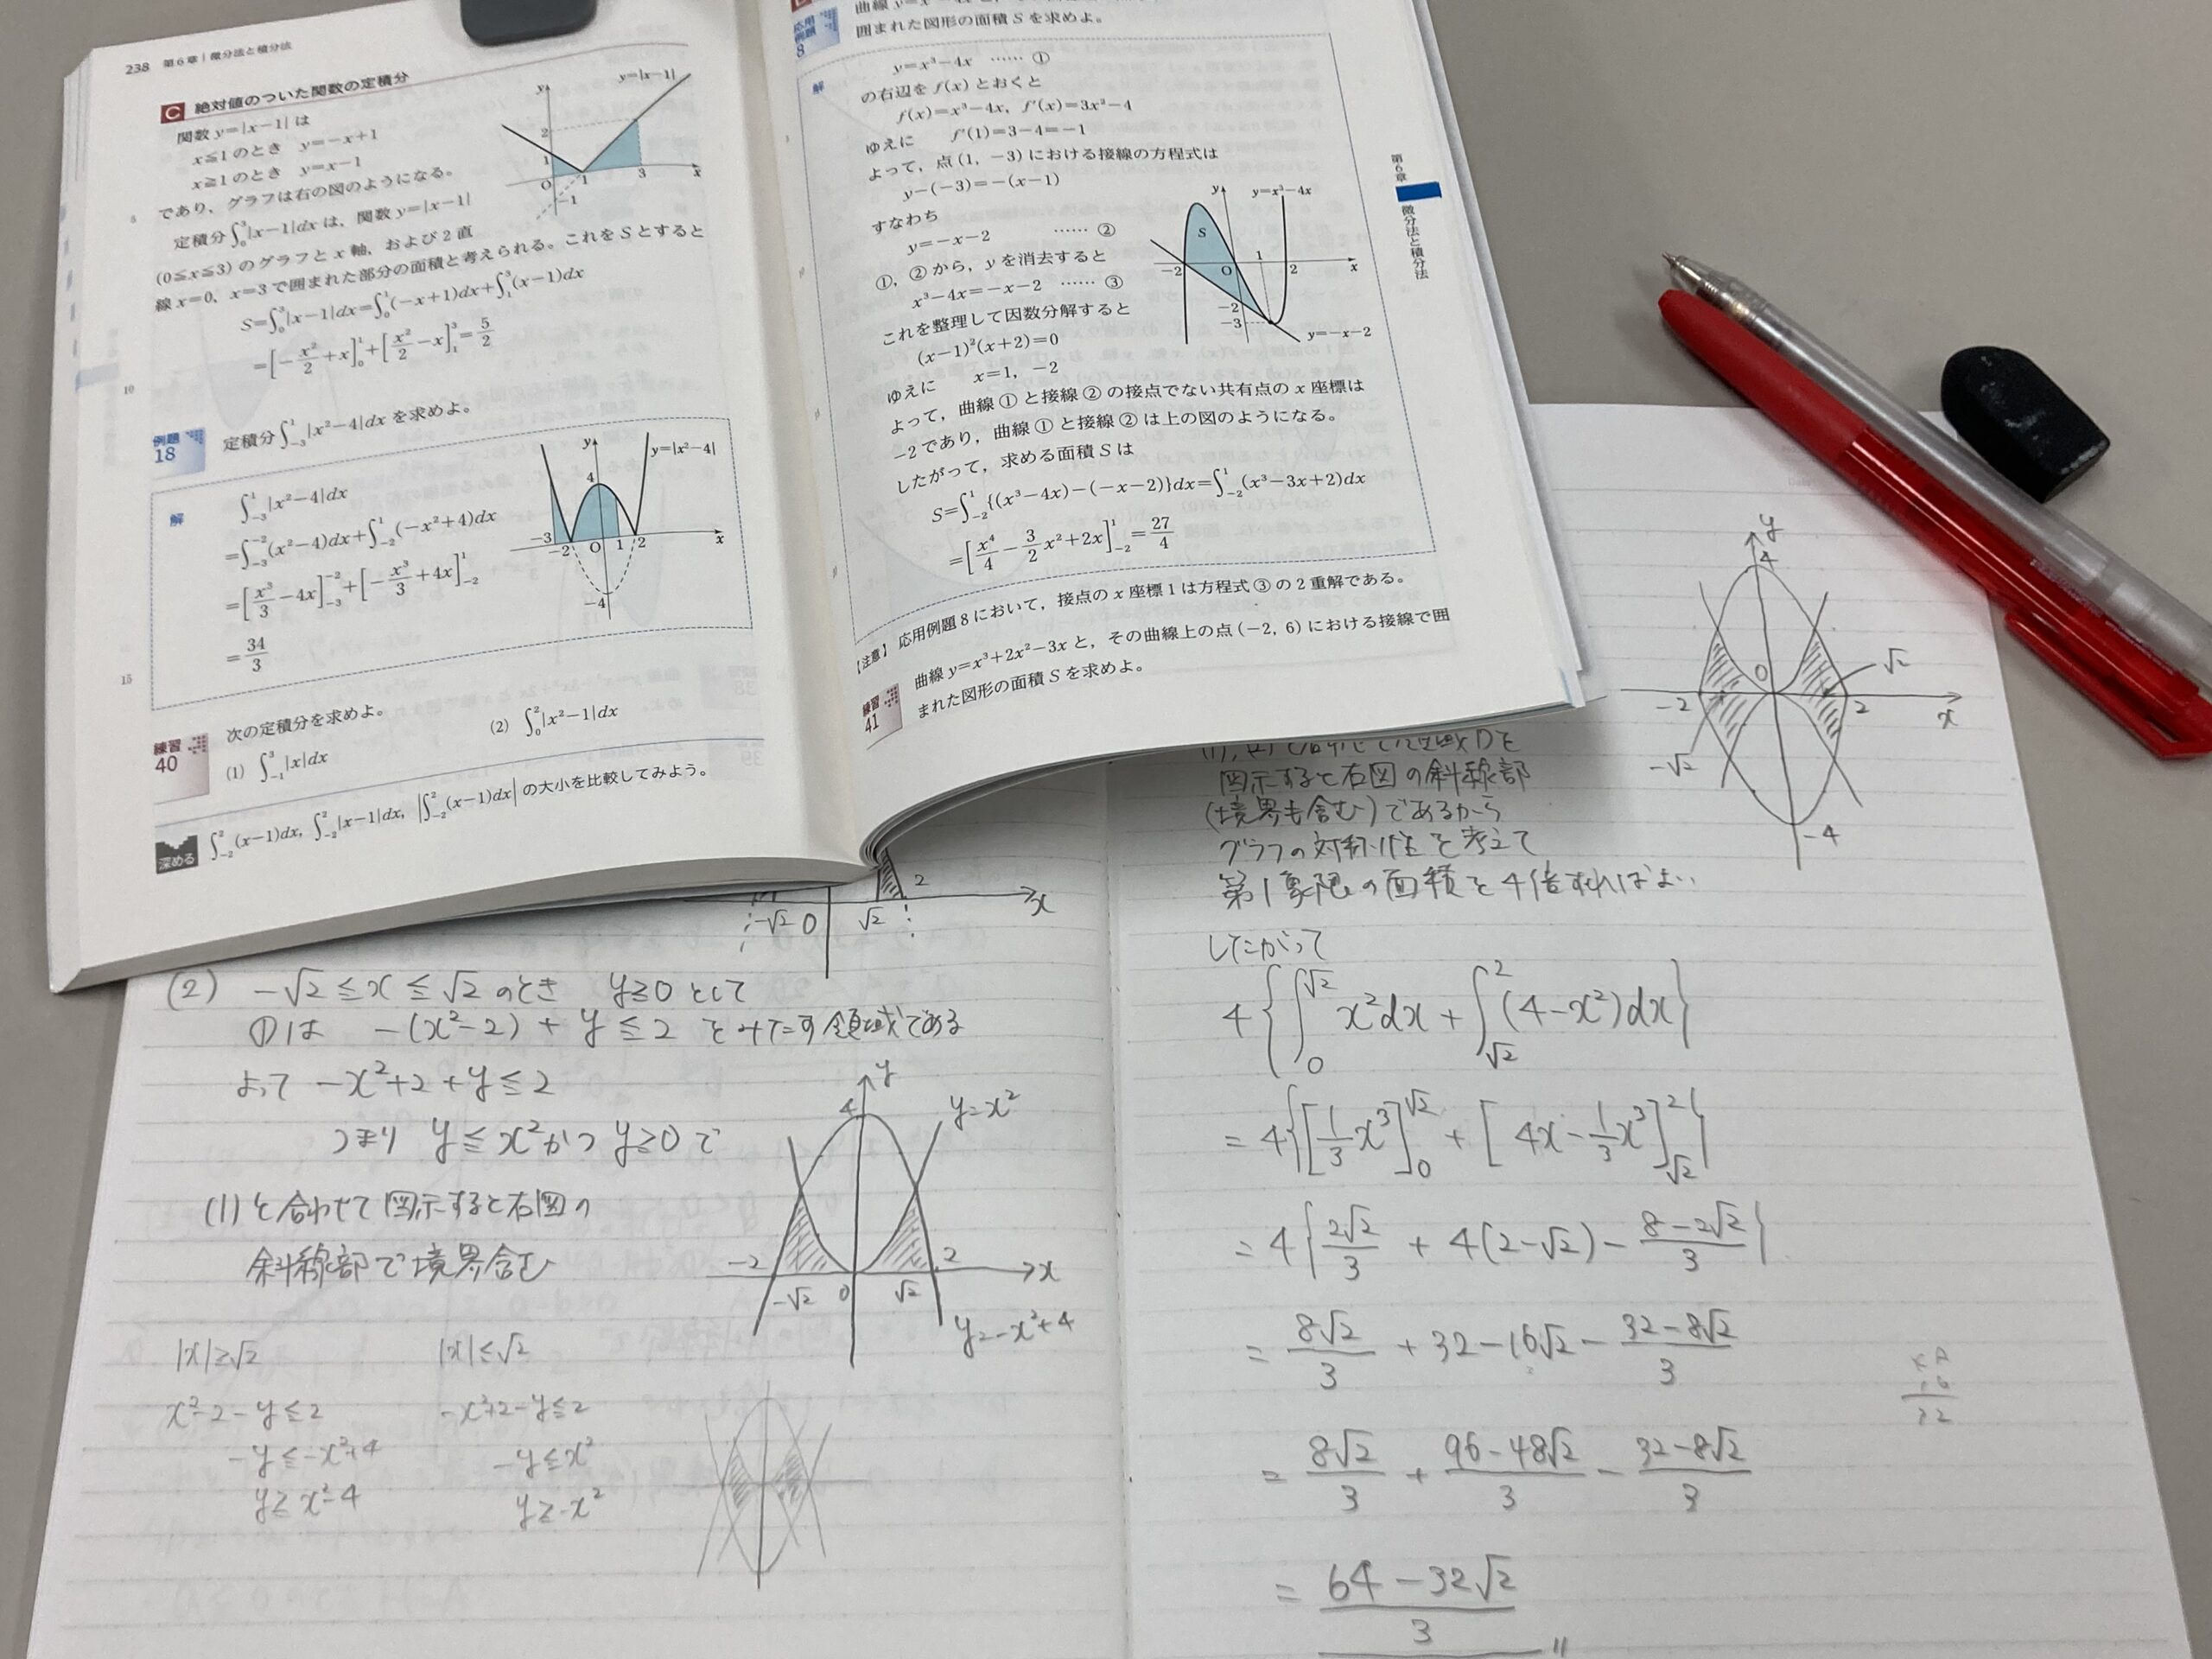 238 第6章 | 微分法と積分法
C 絶対値のついた関数の定積分
関数 y=|x−1| は
x≦1 のとき y=−x+1
x≧1 のとき y=x−1
であり，グラフは右の図のようになる。
定積分∫₀³|x−1|dx は，関数 y=|x−1|
(0≦x≦3) のグラフと x 軸，および 2 直
線 x=0，x=3 で囲まれた部分の面積と考えられる。これを S とすると
S=∫₀³|x−1|dx=∫₀¹(−x+1)dx+∫₁³(x−1)dx
=[−x²/2+x]₀¹+[x²/2−x]₁³=5/2
y
y=|x−1|
2
1
O 1 3 x
−1
5
10
15
例題 18
定積分∫₋₃¹|x²−4|dx を求めよ。
解
∫₋₃¹|x²−4|dx
=∫₋₃⁻²(x²−4)dx+∫₋₂¹(−x²+4)dx
=[x³/3−4x]₋₃⁻²+[−x³/3+4x]₋₂¹
=34/3
y
y=|x²−4|
4
−3 −2 O 1 2 x
−4
練習 40
次の定積分を求めよ。
(1) ∫₋₁³|x|dx
(2) ∫₀²|x²−1|dx
深める
∫₋₂²(x−1)dx，∫₋₂²|x−1|dx，|∫₋₂²(x−1)dx| の大小を比較してみよう。
応用例題 8
囲まれた図形の面積 S を求めよ。
解
y=x³−4x …… ①
の右辺を f(x) とおくと
f(x)=x³−4x，f′(x)=3x²−4
ゆえに f′(1)=3−4=−1
よって，点 (1，−3) における接線の方程式は
y−(−3)=−(x−1)
すなわち
y=−x−2 …… ②
①，② から，y を消去すると
x³−4x=−x−2 …… ③
これを整理して因数分解すると
(x−1)²(x+2)=0
ゆえに x=1，−2
よって，曲線 ① と接線 ② の接点でない共有点の x 座標は
−2 であり，曲線 ① と接線 ② は上の図のようになる。
したがって，求める面積 S は
S=∫₋₂¹{(x³−4x)−(−x−2)}dx=∫₋₂¹(x³−3x+2)dx
=[x⁴/4−3/2x²+2x]₋₂¹=27/4
y
y=x³−4x
S
−2 O 1 2 x
−2
−3
y=−x−2
【注意】 応用例題 8 において，接点の x 座標 1 は方程式 ③ の 2 重解である。
練習 41
曲線 y=x³+2x²−3x と，その曲線上の点 (−2，6) における接線で囲
まれた図形の面積 S を求めよ。
第6章
微分法と積分法
−√2 0 √2 2 x
(2) −√2≦x≦√2 のとき y≧0 として
①は −(x²−2)+y≦2 をみたす領域である
よって −x²+2+y≦2
つまり y≦x² かつ y≧0 で
(1)と合わせて図示すると右図の
斜線部で境界含む
y
4
y=x²
−2 −√2 0 √2 2 x
y=−x²+4
|x|≧√2
x²−2−y≦2
−y≦−x²+4
y≧x²−4
|x|≦√2
−x²+2−y≦2
−y≦x²
y≧−x²
図示すると右図の斜線部
(境界も含む)であるから
グラフの対称性を考えて
第1象限の面積を4倍すればよい
y
4
0
√2
−2 2 x
−√2
−4
したがって
4{∫₀^√2 x²dx+∫_√2²(4−x²)dx}
=4{[1/3x³]₀^√2+[4x−1/3x³]_√2²}
=4{2√2/3+4(2−√2)−(8−2√2)/3}
=8√2/3+32−16√2−(32−8√2)/3
=8√2/3+(96−48√2)/3−(32−8√2)/3
=(64−32√2)/3